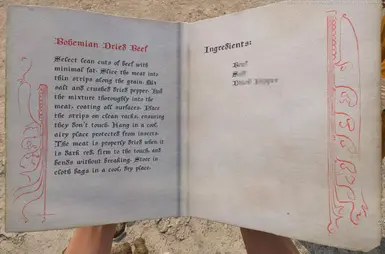 Bohemian Dried Beef
Select lean cuts of beef with
minimal fat. Slice the meat into
thin strips along the grain. Mix
salt and crushed dried pepper. Rub
the mixture thoroughly into the
meat, coating all surfaces. Place
the strips on clean racks, ensuring
they don't touch. Hang in a cool,
airy place protected from insects.
The meat is properly dried when it
is dark red, firm to the touch and
bends without breaking. Store in
cloth bags in a cool, dry place.
Ingredients:
Beef
Salt
Dried Pepper